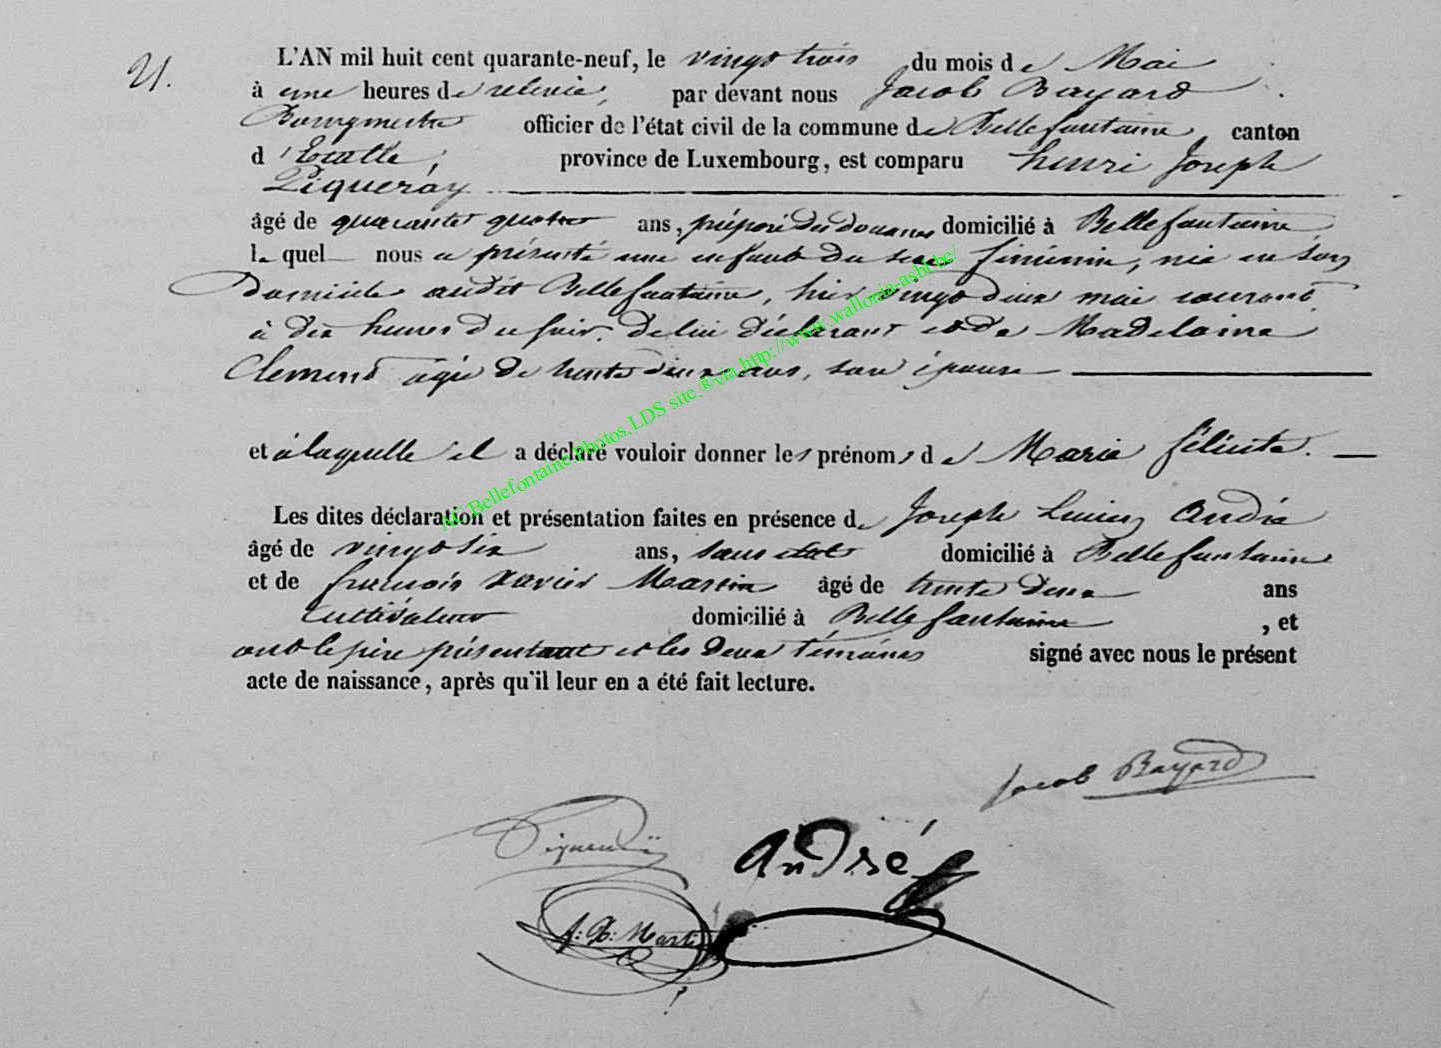 21.
L'AN mil huit cent quarante-neuf, le vingt trois du mois de Mai
à une heures de relevée, par devant nous Jacob Bayard
Bourgmestre officier de l'état civil de la commune de Bellefontaine canton
d'Etalle, province de Luxembourg, est comparu henri Joseph
Piqueray
âgé de quarante quatre ans, préposé des douanes domicilié à Bellefontaine
lequel nous a présenté une enfant du sexe féminin, née en son
Domicile audit Bellefontaine, hier vingt deux mai courant
à dix heures du soir, de lui déclarant et de Madelaine
Clement agée de trente deux ans, son épouse
et à laquelle il a déclaré vouloir donner les prénoms de Marie félicité.
Les dites déclaration et présentation faites en présence de Joseph Lucien André
âgé de vingt six ans, sans état domicilié à Bellefontaine
et de francois xavier Martin âgé de trente deux ans
Cultivateur domicilié à Bellefontaine, et
ont le père présentant et les deux témoins signé avec nous le présent
acte de naissance, après qu'il leur en a été fait lecture.
Jacob Bayard
Piqueray
André
f: X: Martin
AC Bellefontaine.Photos.LDS site.®via.http://www.wallonia-asbl.be/